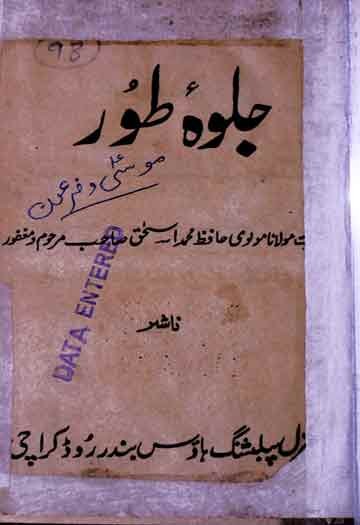 (93)
جلوۂ طُور
موسیٰؑ و فرعون
مولانا مولوی حافظ محمد اسحٰق صاحب مرحوم و مغفور
DATA ENTERED
ناشر
پبلشنگ ہاؤس بندر روڈ کراچی